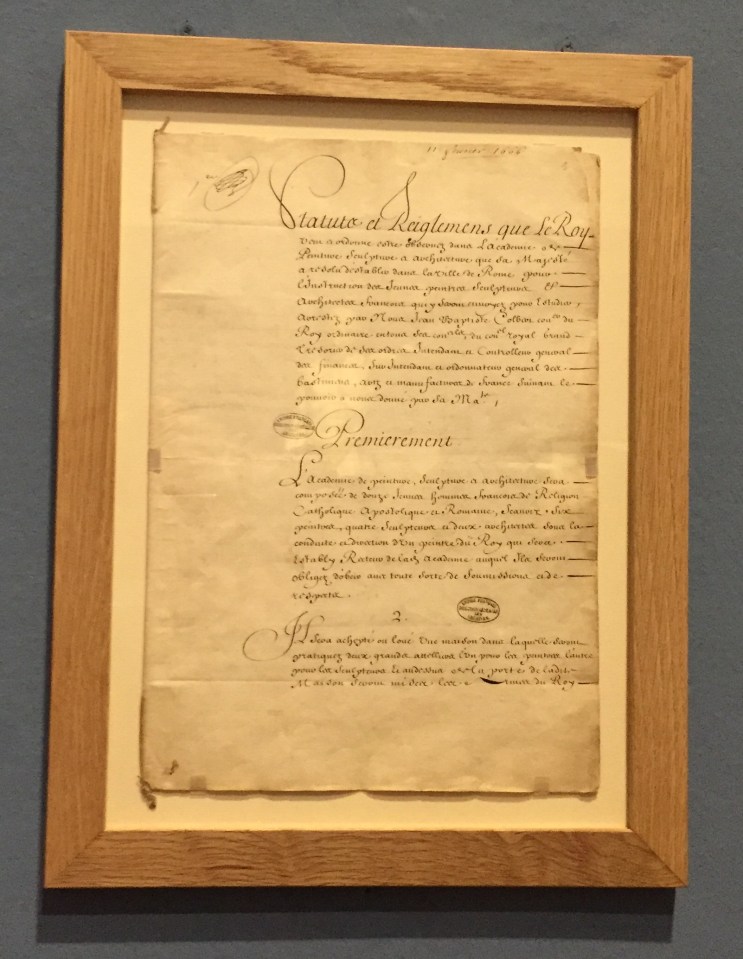 11 février 1666
Statuts et Reiglemens que Le Roy
veut et ordonne estre observez dans L'academie de
Peinture Sculpture et architecture que sa Majesté
a resolu d'establir dans la ville de Rome pour
L'Instruction des Jeunes peintres Sculpteurs et
Architectes francois qui y seront envoyez pour Estudier
Arrestez par Nous Jean Baptiste Colbert con.er du
Roy ordinaire en tous ses con.ls du con.el royal grand
Tresorier de ses ordres Intendant et Controlleur general
des finances, Sur Intendant et ordonnateur general des
bastimens, arts et manufactures de france suivant le
pouvoir a nous donné par sa Ma.té
Premierement
L'Academie de peinture, Sculpture et architecture sera
composée de douze Jeunes hommes francois de Religion
Catholique Apostolique et Romaine, scavoir six
peintres, quatre Sculpteurs et deux architectes sous la
conduite et direction d'un peintre du Roy qui sera
estably Recteur de lad. academie auquel Ils seront
obligez d'obeir avec toute sorte de soumissions et de
respects.
2.
Il sera achepté ou loué vne maison dans laquelle seront
pratiquez deux grands attelliers l'un pour les peintres l'autre
pour les Sculpteurs et audessus de la porte de ladite
Maison seront mises les Armes du Roy